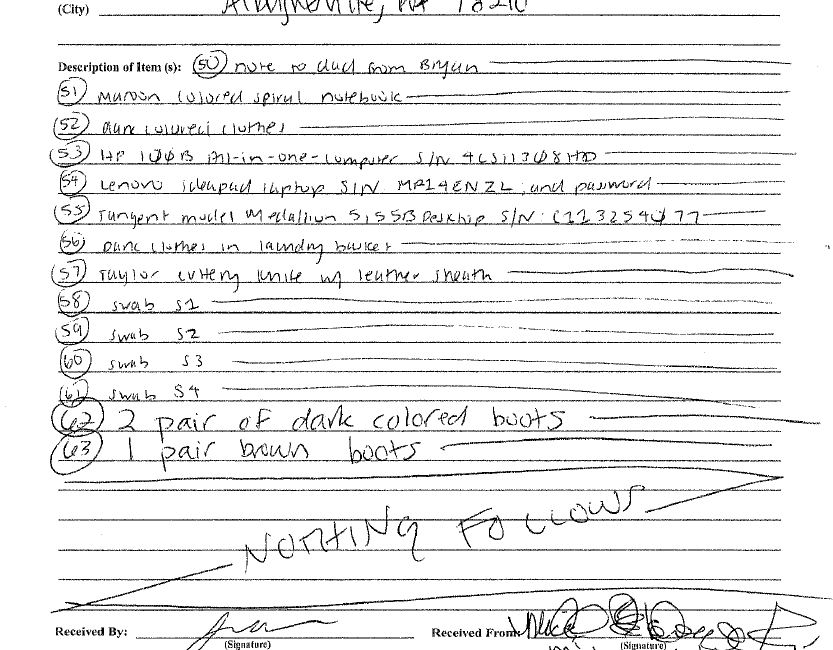 (City) Albrightsville, PA 18210
Description of Item (s): (50) note to dad from Bryan
(51) maroon colored spiral notebook
(52) dark colored clothes
(53) HP 100B All-in-one-computer S/N 4CS11308HD
(54) Lenovo ideapad laptop S/N MP14ENZL, and password
(55) Tangent model Medallion S155B Desktop S/N: C113254077
(56) Dark clothes in laundry basket
(57) Taylor cutlery knife w/ leather sheath
(58) swab S1
(59) swab S2
(60) swab S3
(61) swab S4
(62) 2 pair of dark colored boots
(63) 1 pair brown boots
NOTHING FOLLOWS
Received By: Received From:
(Signature) (Signature)